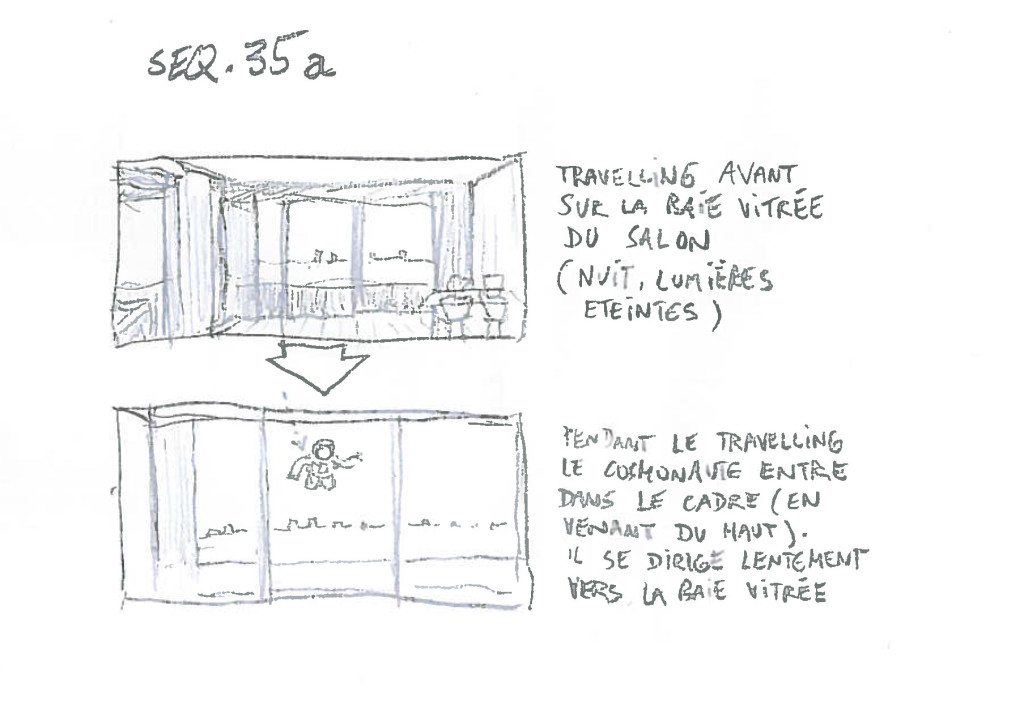 SEQ. 35 a
TRAVELLING AVANT
SUR LA BAIE VITRÉE
DU SALON
(NUIT, LUMIÈRES
ETEINTES)
PENDANT LE TRAVELLING
LE COSMONAUTE ENTRE
DANS LE CADRE (EN
VENANT DU HAUT).
IL SE DIRIGE LENTEMENT
VERS LA BAIE VITRÉE